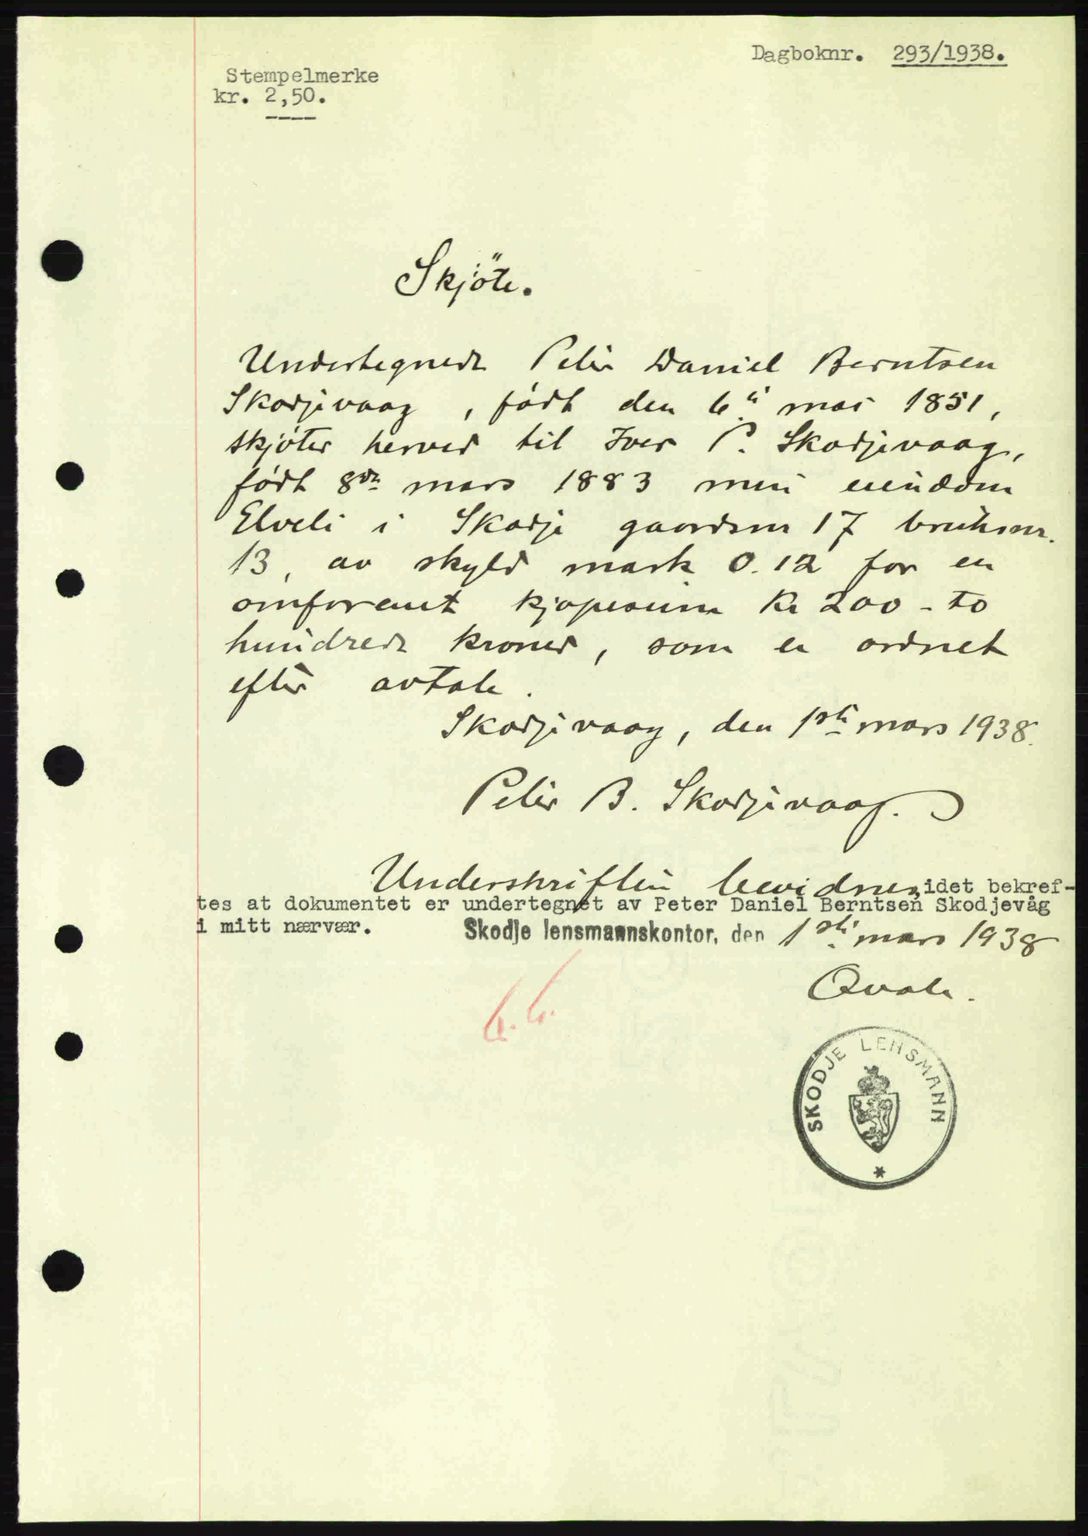 Dagboknr. 293/1938.
Stempelmerke
kr. 2,50.
Skjöte.
Undertegnede Peter Daniel Berntsen
Skodjevaag, födt den 6te mai 1851,
skjöter herved til Iver P. Skodjevaag,
födt 8de mars 1883 min eiendom
Elveli i Skodje gaardsnr 17 bruksnr.
13, av skyld mark 0.12 for en
omforent kjøpesum Kr 200 - to
hundrede kroner, som er ordnet
efter avtale.
Skodjevaag, den 1ste mars 1938.
Peter B. Skodjevaag.
Underskriften bevidnes, idet bekref-
tes at dokumentet er undertegnet av Peter Daniel Berntsen Skodjevåg
i mitt nærvær. Skodje lensmannskontor, den 1ste mars 1938
Qvale.
SKODJE LENSMANN